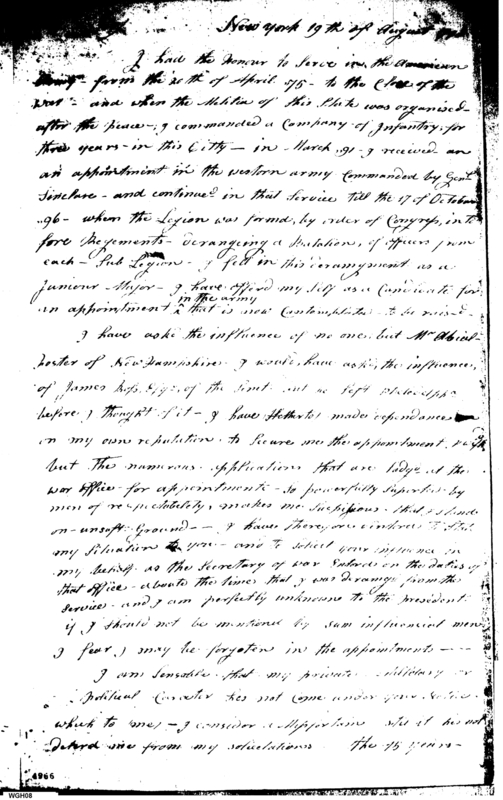 New York 19th of August
I had the honour to Serve in the American
Army - form the 20th of April 75 - to the Close of the
war - and when the Militia of this State was organised
after the peace, I commanded a Company of Infantry, for
three years - in this Citty - in March 91 - I received an
an appointment in the western army Commanded by Genl
Sinclare - and continued in that Service till the 17 of October
96 - when the Legion was formd, by order of Congress, into
fore Regements - derangeing a of officers from
each - Sub Legion - I fell in this derangment as a
juniour Major - I have offerd my self as a Candidate for
an appointment in the army that is now Contemplated to be raised
I have askt the influence of no one but Mr Abial
Foster of New Hampshire - I would have askt the influence
of James Ross Esqr of the but he left
before I thought of it - I have Hetherto made dependance
on my own reputation to Secure me the appointment
but the numerous applications that are lodgd at the
war office - for appointments - So powerfully Suported by
men of respectability, makes me Suspicious that I stand
on unsoft Ground - I have therefore to
my Situation to you - and to solicit your influence in
my behalf - as the Secretary of war Entered on the duties of
that office - aboute the time that I was derangd from the
Service - and I am perfectly unknown to the president
if I should not be mentioned by sum influencial men
I fear I may be forgoten in the appointments -
I am Sensable that my private Millitary or
Political Caracter has not Come under your Notice
which to me, I consider a Misfortune
deterd me from my solicitations the 75 years -
4966
WGH08